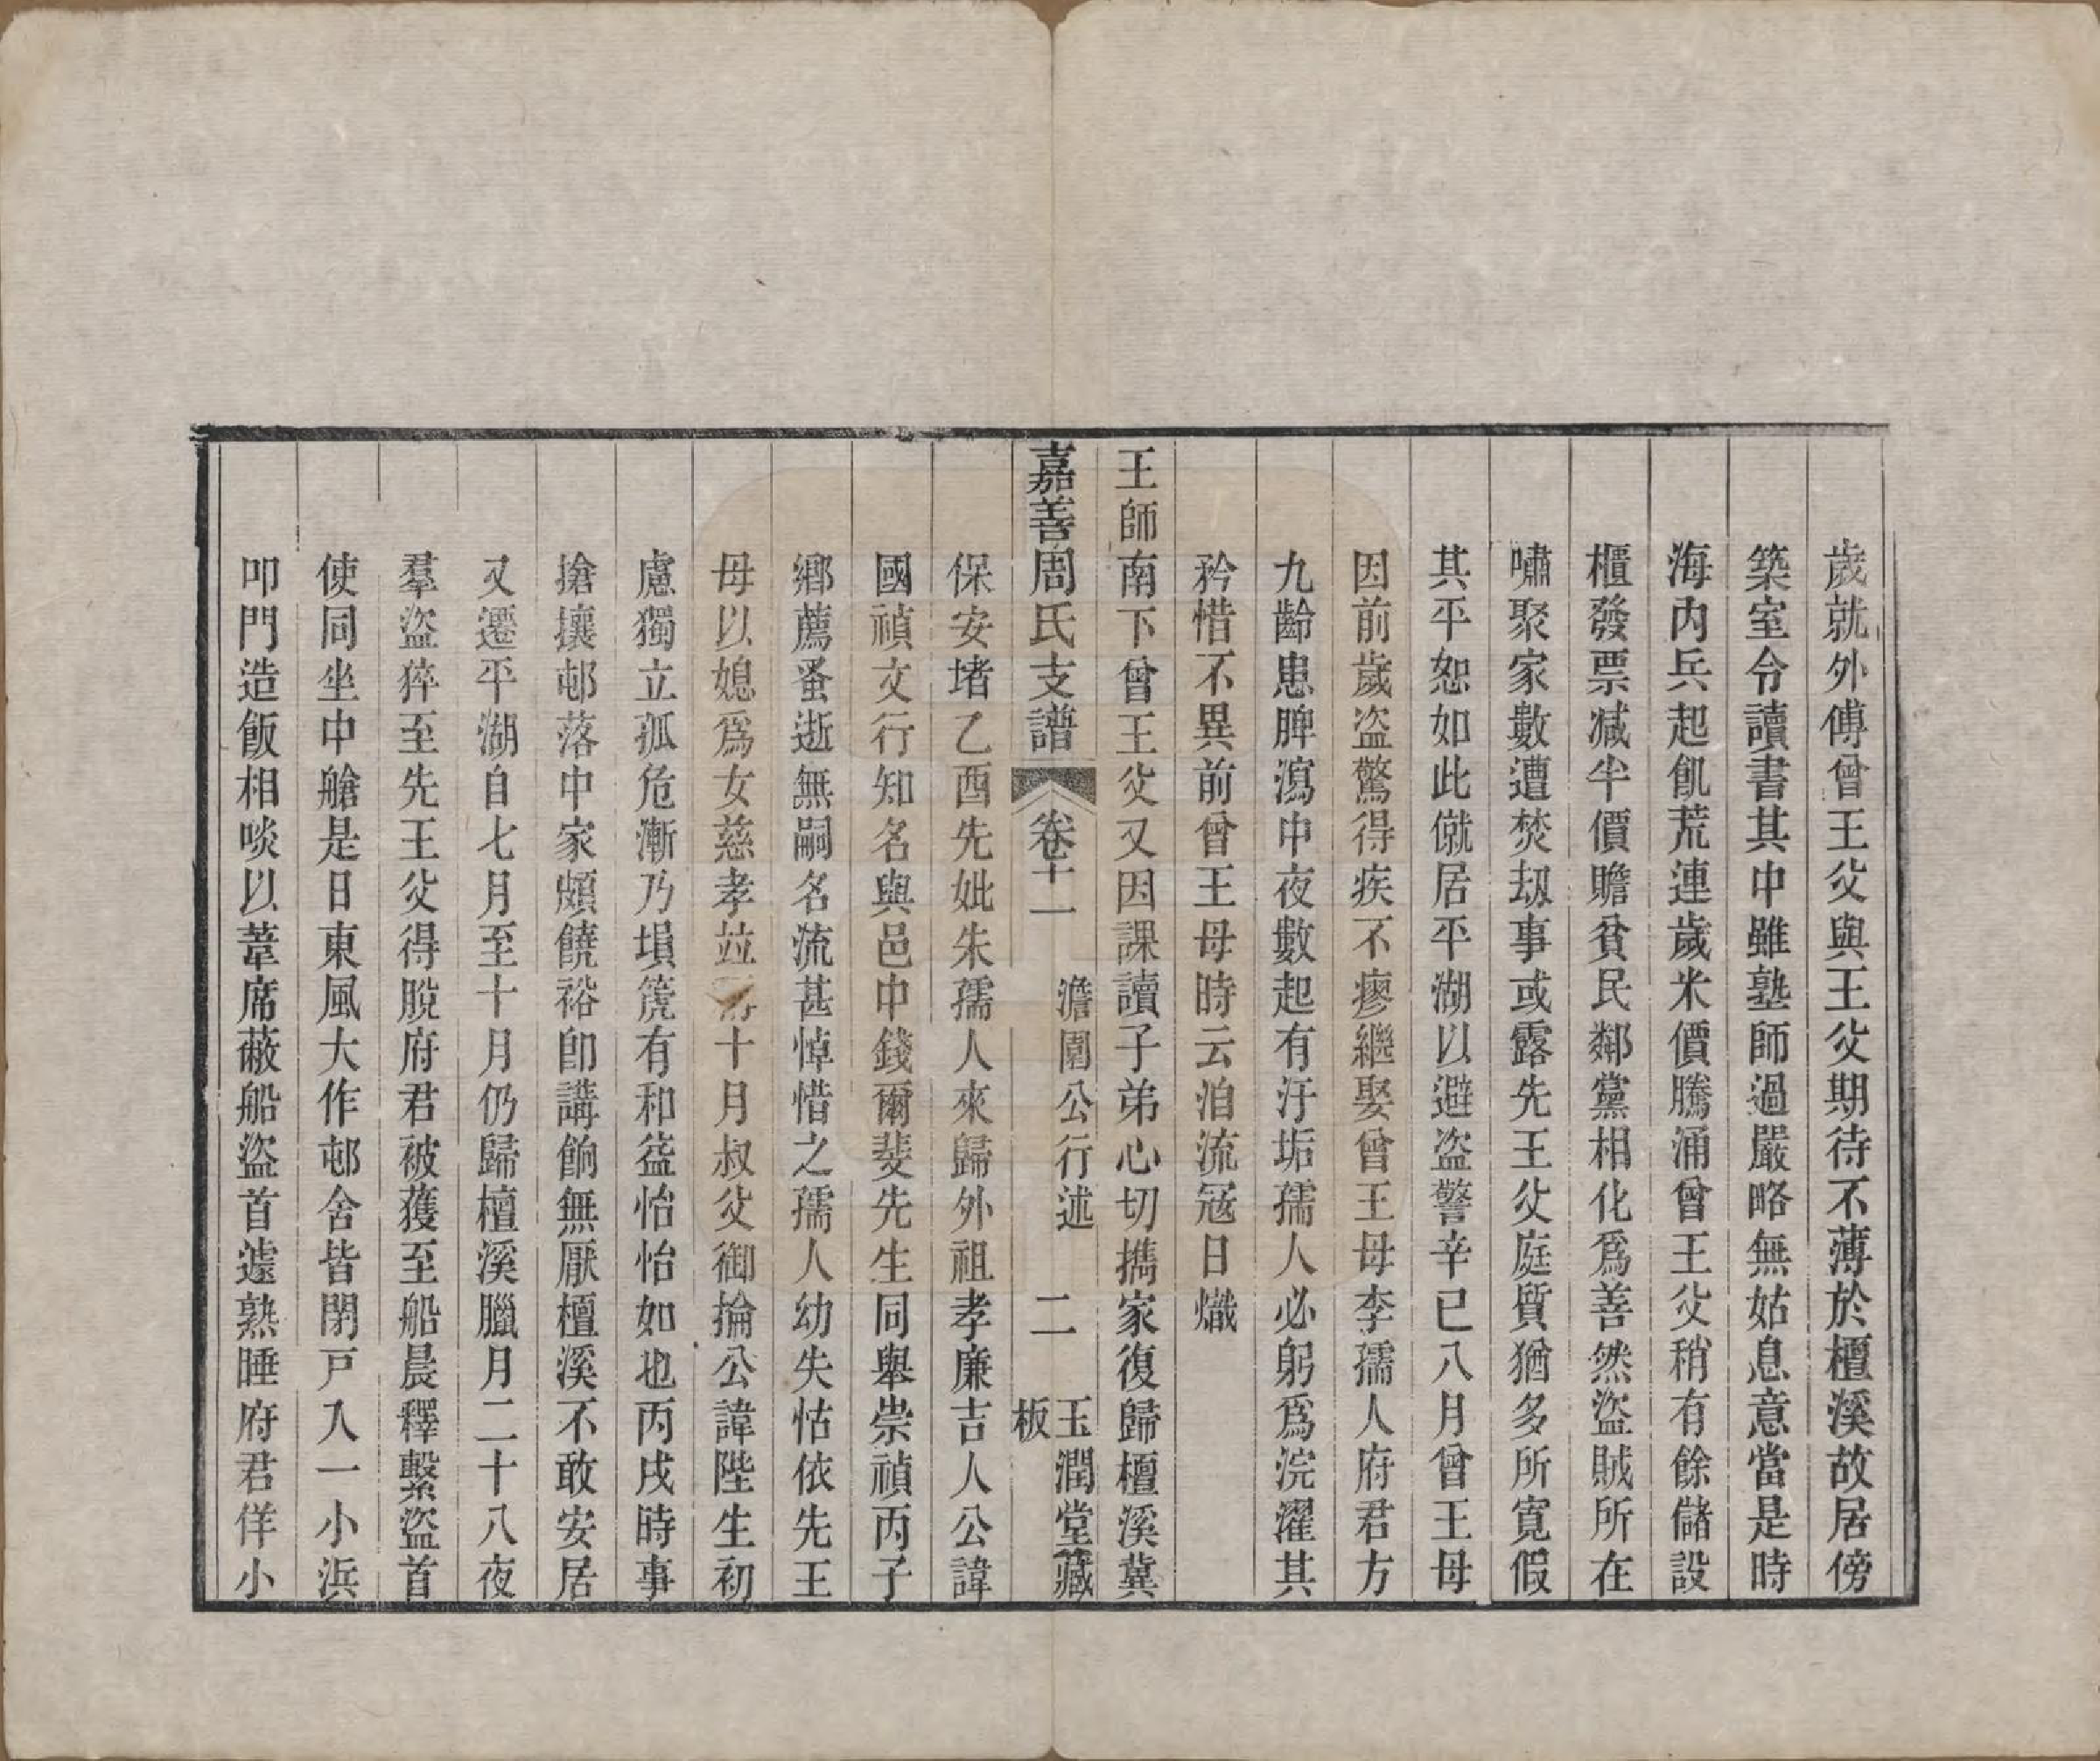 歲就外傅曾王父與王父期待不薄於檀溪故居傍
築室令讀書其中雖塾師過嚴略無姑息意當是時
海內兵起飢荒連歲米價騰涌曾王父稍有餘儲設
櫃發票减半價贍貧民鄰黨相化爲善然盜賊所在
嘯聚家數遭焚刼事或露先王父庭質猶多所寬假
其平恕如此僦居平湖以避盜警辛巳八月曾王母
因前歲盜驚得疾不瘳繼娶曾王母李孺人府君方
九齡患脾瀉中夜數起有汙垢孺人必躬爲浣濯其
矜惜不異前曾王母時云洎流寇日熾
王師南下曾王父又因課讀子弟心切攜家復歸檀溪冀
嘉善周氏支譜 卷十一 澹園公行述 二 玉潤堂藏板
保安堵乙酉先妣朱孺人來歸外祖孝廉吉人公諱
國禎文行知名與邑中錢爾斐先生同舉崇禎丙子
鄉薦蚤逝無嗣名流甚悼惜之孺人幼失怙依先王
母以媳爲女慈孝竝十月叔父御掄公諱陛生初
慮獨立孤危漸乃塤箎有和益怡怡如也丙戌時事
搶攘邨落中家頗饒裕卽講餉無厭檀溪不敢安居
又遷平湖自七月至十月仍歸檀溪臘月二十八夜
羣盜猝至先王父得脫府君被獲至船晨釋繫盜首
使同坐中艙是日東風大作邨舍皆閉戸入一小浜
叩門造飯相啖以葦席蔽船盜首遽熟睡府君佯小